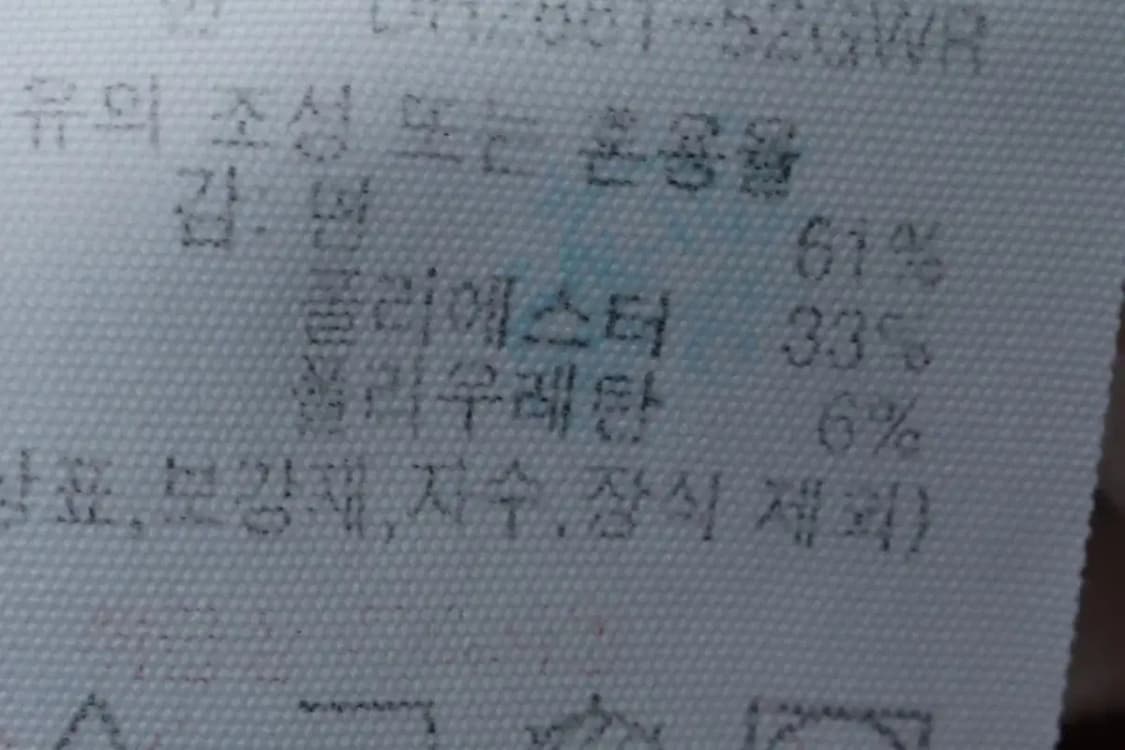 유의 조성 또는 혼용율
겉: 면 61%
폴리에스터 33%
폴리우레탄 6%
상표,보강재,자수,장식 제외)